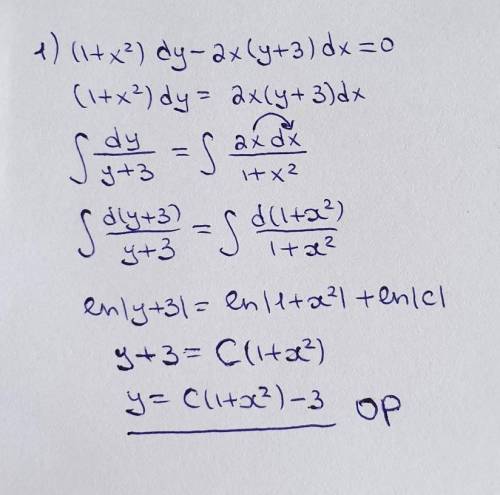 1) (1+x²) dy - 2x(y+3) dx = 0
(1+x²) dy = 2x(y+3)dx
∫ dy/(y+3) = ∫ 2x dx/(1+x²)
∫ d(y+3)/(y+3) = ∫ d(1+x²)/(1+x²)
ln|y+3| = ln|1+x²| + ln|C|
y+3 = C(1+x²)
y = C(1+x²)-3 ОР